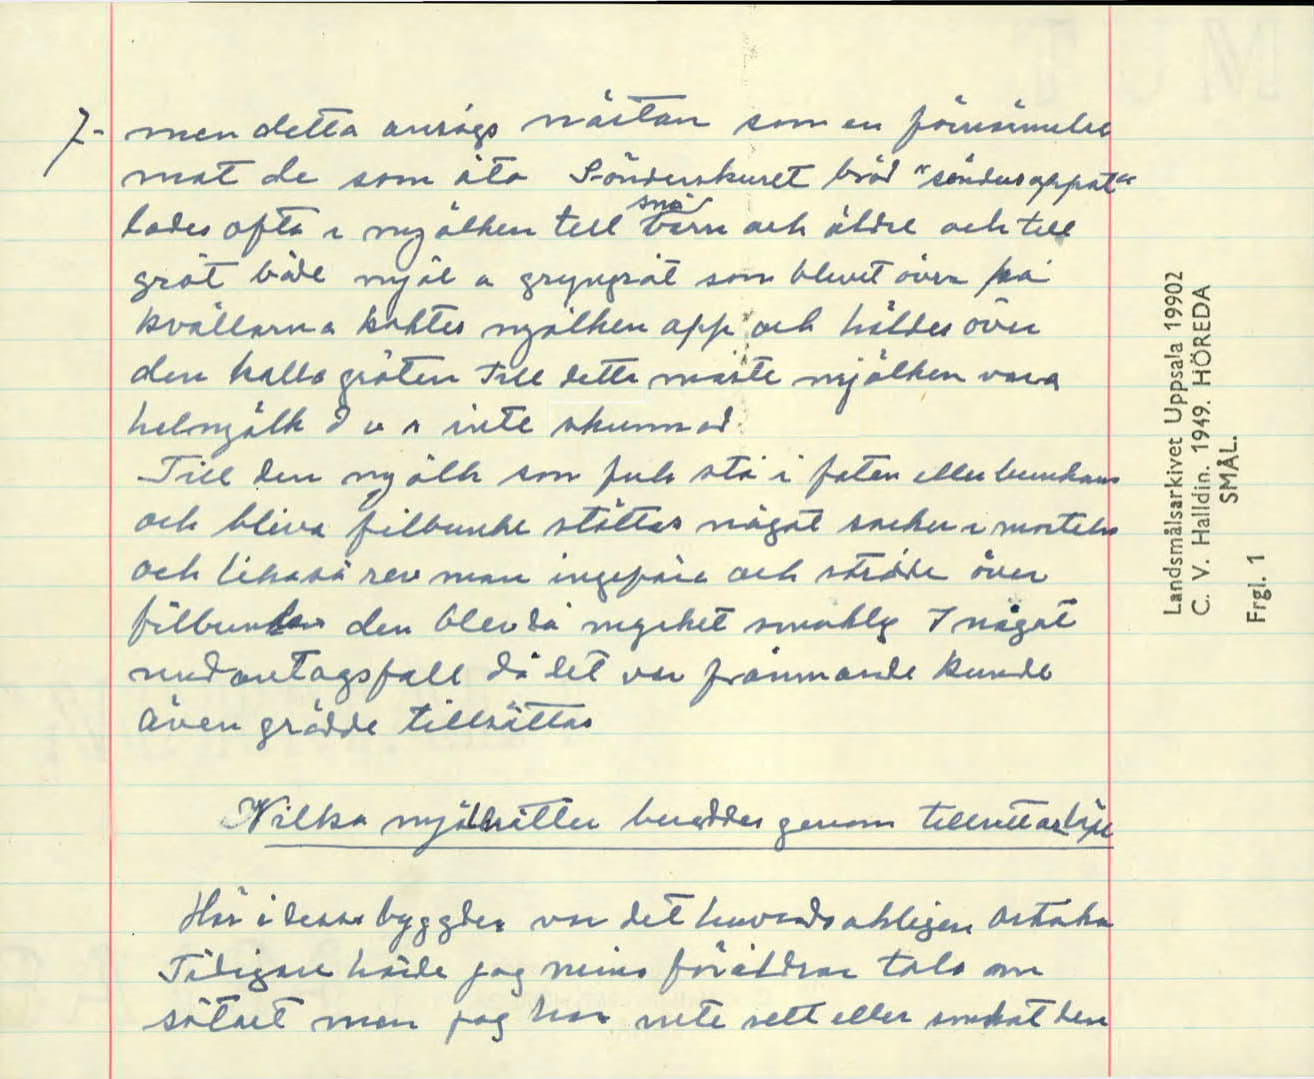 7-
men detta ansågs nästan som en förnämelse
mat de som åto Sönderskuret bröd "sönduappat"
lades ofta i mjölken till små barn och äldre och till
gröt både mjöl a gryngröt som blivit över på
kvällarna koktes mjölken opp och håldes över
den kalla gröten Till detta måste mjölken vara
helmjölk d v s inte skummad.
Till den mjölk som fick stå i faten eller bunkarna
och bliva filbunke stöttes något socker i morteln
och likaså rev man ingefära och strödde över
filbunken den blev då mycket smaklig I något
undantagsfall då det var främmande kunde
även grädde tillsättas
Vilka mjölkrätter bereddes genom tillsatt av löpe
Här i dessa bygder var det huvudsakligen Ostkaka
Tidigare hörde jag mina föräldrar tala om
sötost men jag har inte sett eller smakat den
Landsmålsarkivet Uppsala 19902
C. V. Halldin. 1949. HÖREDA
SMÅL.
Frgl. 1